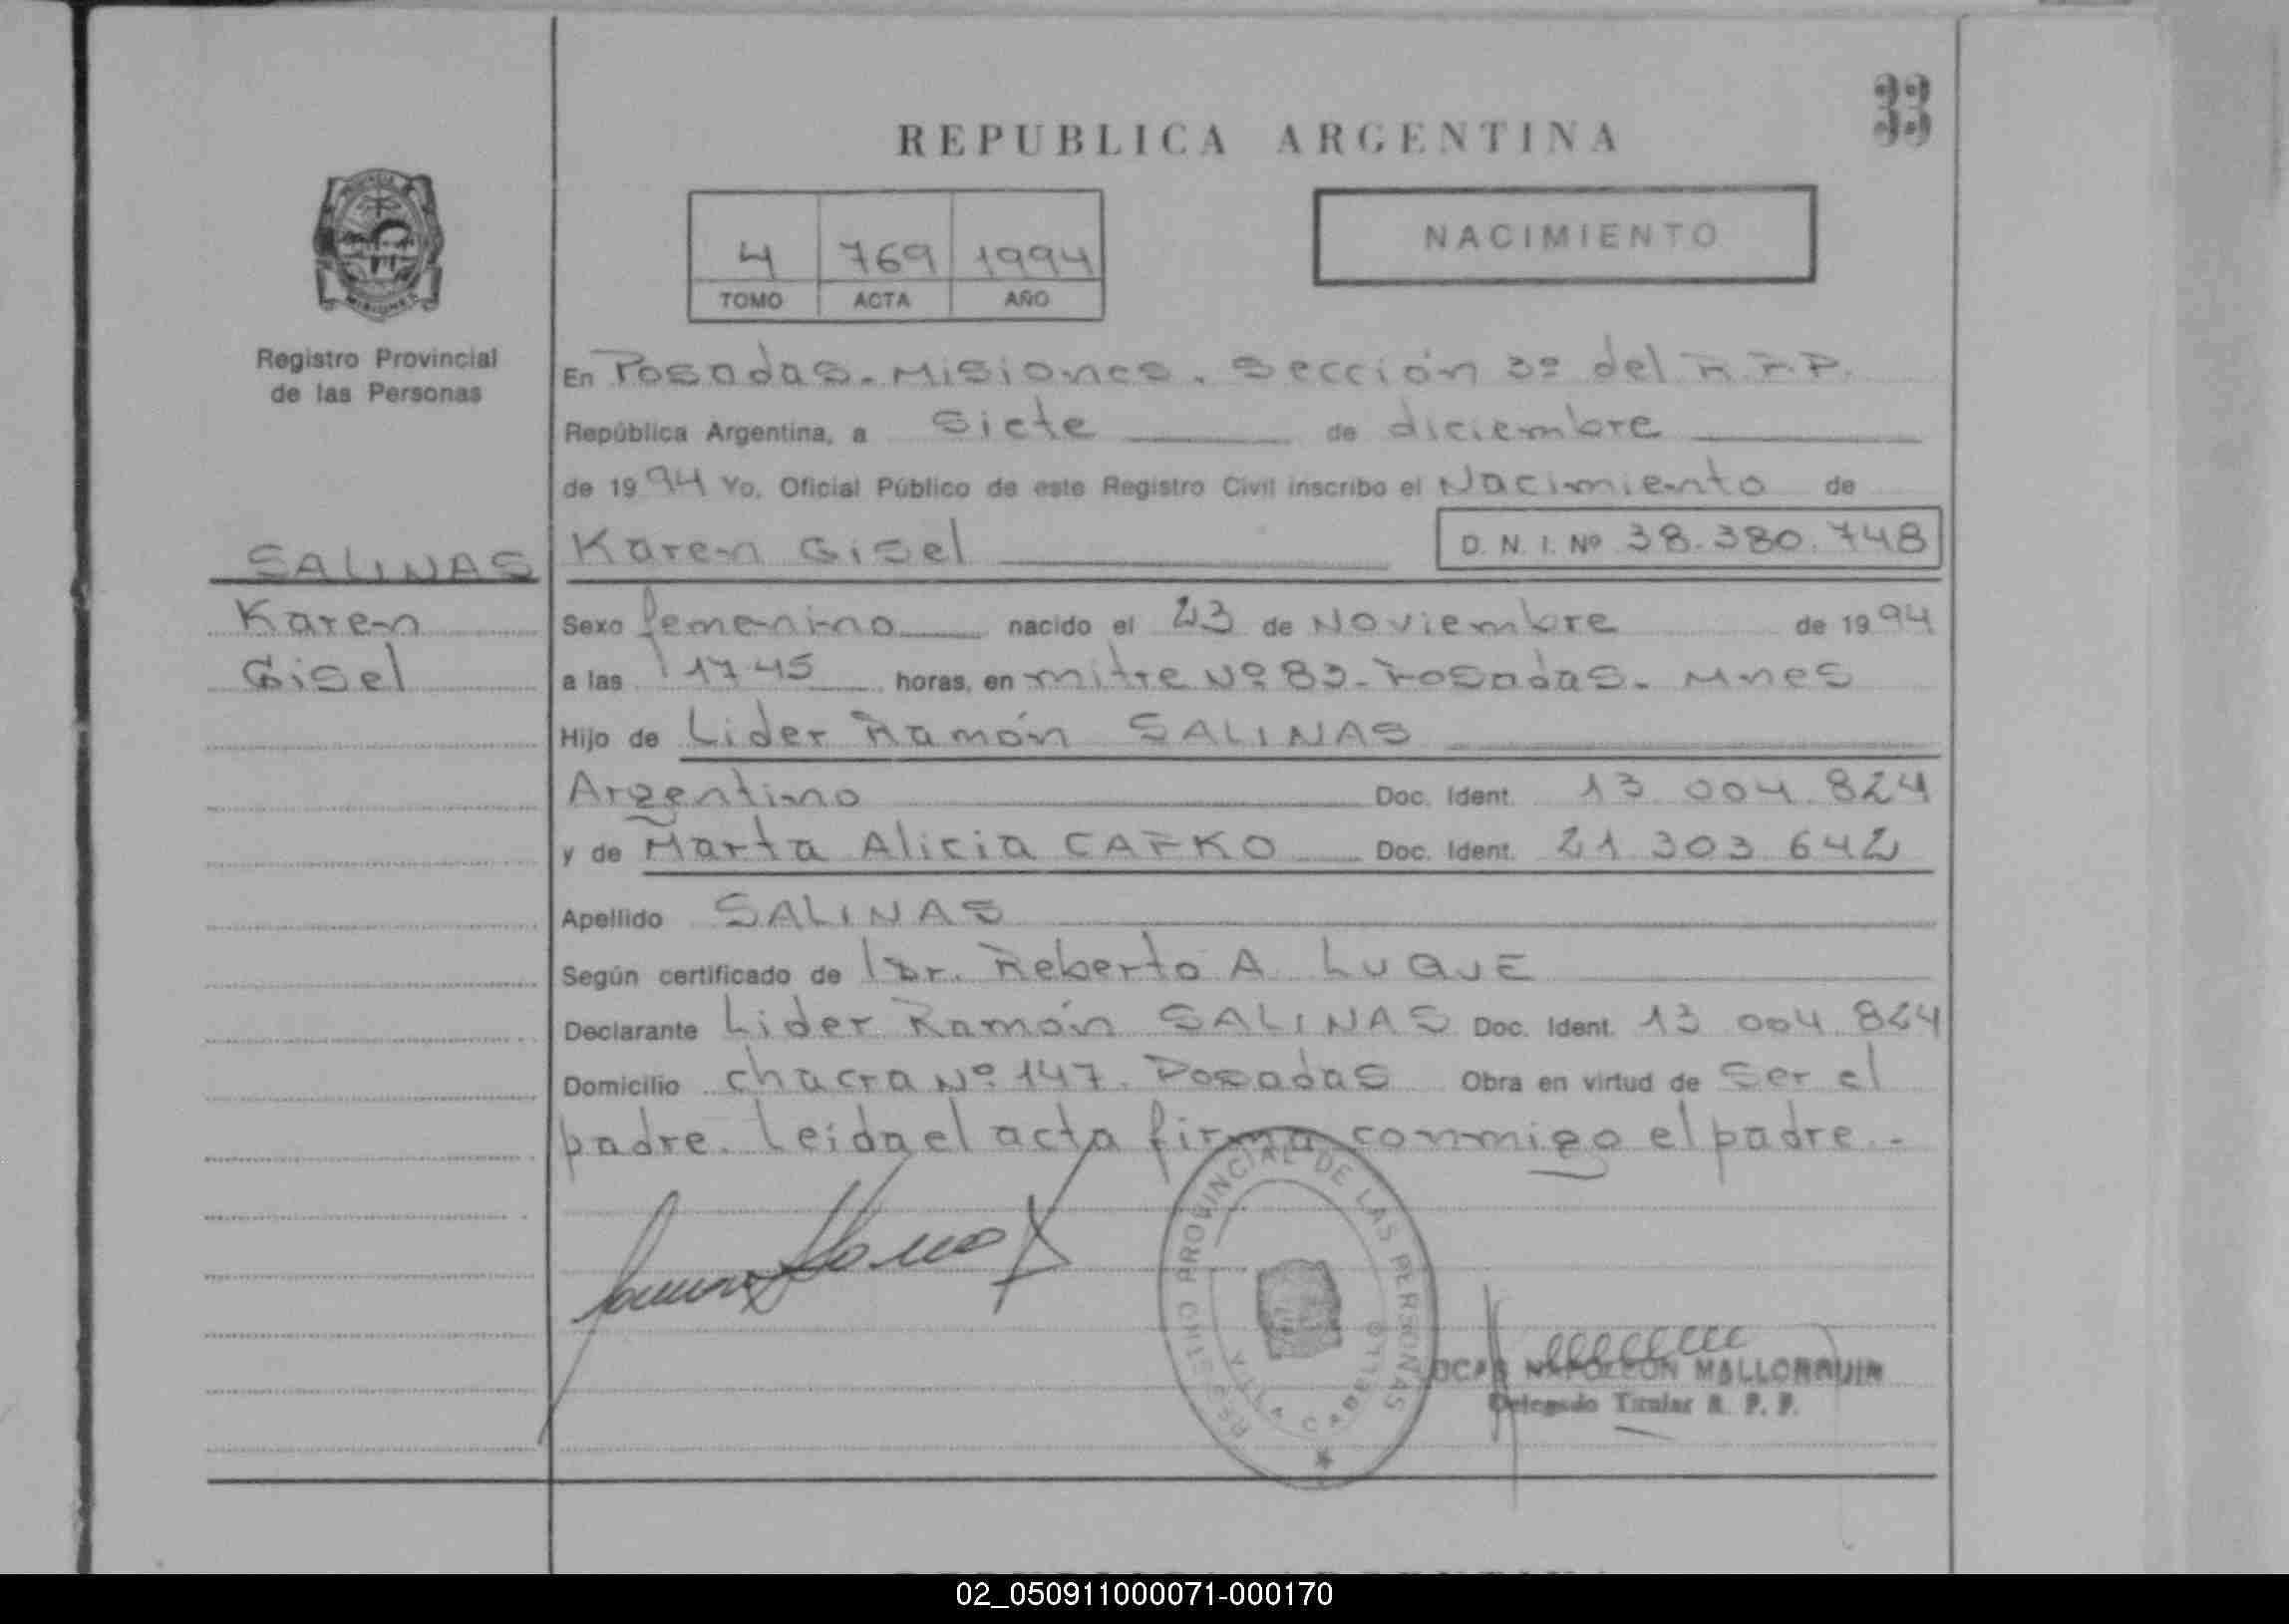 33
REPUBLICA ARGENTINA
4 769 1994
TOMO ACTA AÑO
NACIMIENTO
Registro Provincial
de las Personas
En Posadas. Misiones. Sección 3º del R.P.P.
República Argentina, a siete de diciembre
de 1994 Yo, Oficial Público de este Registro Civil inscribo el Nacimiento de
SALINAS
Karen
Gisel
Karen Gisel D. N. I. Nº 38.380.748
Sexo femenino nacido el 23 de Noviembre de 1994
a las 17 45 horas, en mitre Nº 83. Posadas. Mnes
Hijo de Lider Ramón SALINAS
Argentino Doc. Ident. 13 004 824
y de Marta Alicia Doc. Ident. 21 303 642
Apellido SALINAS
Según certificado de Dr. Reberto A. LUQUE
Declarante Lider Ramón SALINAS Doc. Ident. 13 004 824
Domicilio chacra Nº 147. Posadas Obra en virtud de ser el
padre. Leida el acta firma conmigo el padre.-
REGISTRO PROVINCIAL DE LAS PERSONAS
VILLA CABELLO
NAPOLEON MALLORQUIN
Delegado Titular R. P. P.
02_050911000071-000170